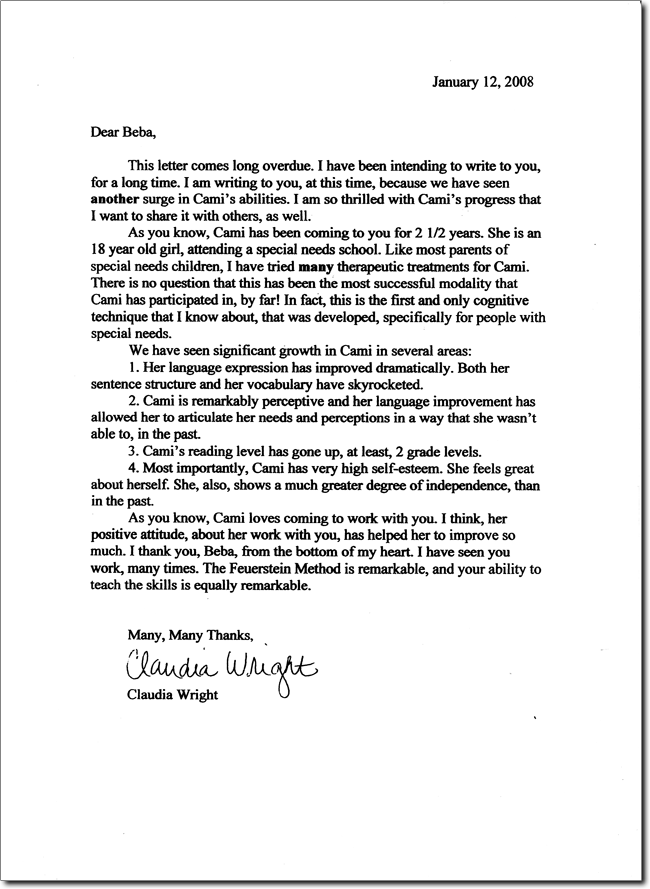 January 12, 2008
Dear Beba,
This letter comes long overdue. I have been intending to write to you,
for a long time. I am writing to you, at this time, because we have seen
another surge in Cami's abilities. I am so thrilled with Cami's progress that
I want to share it with others, as well.
As you know, Cami has been coming to you for 2 1/2 years. She is an
18 year old girl, attending a special needs school. Like most parents of
special needs children, I have tried many therapeutic treatments for Cami.
There is no question that this has been the most successful modality that
Cami has participated in, by far! In fact, this is the first and only cognitive
technique that I know about, that was developed, specifically for people with
special needs.
We have seen significant growth in Cami in several areas:
1. Her language expression has improved dramatically. Both her
sentence structure and her vocabulary have skyrocketed.
2. Cami is remarkably perceptive and her language improvement has
allowed her to articulate her needs and perceptions in a way that she wasn't
able to, in the past.
3. Cami's reading level has gone up, at least, 2 grade levels.
4. Most importantly, Cami has very high self-esteem. She feels great
about herself. She, also, shows a much greater degree of independence, than
in the past.
As you know, Cami loves coming to work with you. I think, her
positive attitude, about her work with you, has helped her to improve so
much. I thank you, Beba, from the bottom of my heart. I have seen you
work, many times. The Feuerstein Method is remarkable, and your ability to
teach the skills is equally remarkable.
Many, Many Thanks,
Claudia Wright
Claudia Wright